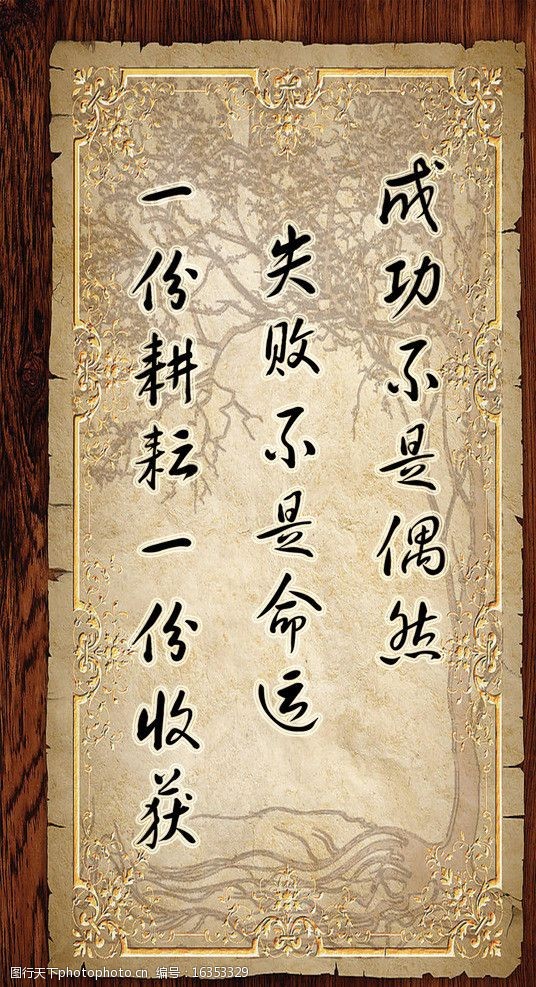 成功不是偶然
失败不是命运
一份耕耘一份收获
图行天下photophoto.cn 编号：16353329